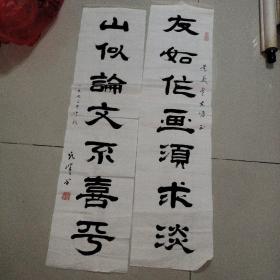 友如作画须求淡
山似論文不喜平